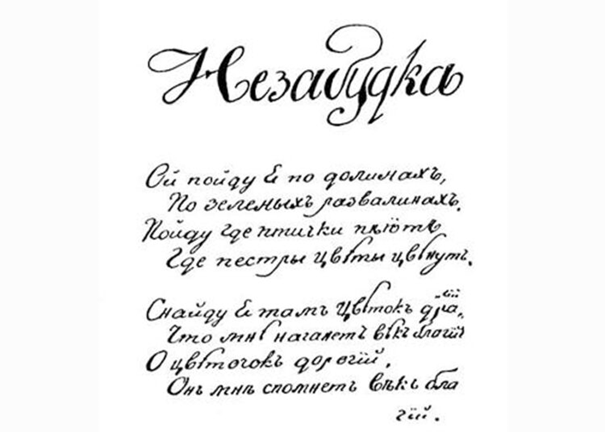 Незабудка
Ой пойду Я по долинахъ,
По зеленыхъ развалинахъ.
Пойду где птички пѣютъ
Где пестры цвѣты цвѣнутъ.
Снайду Я тамъ Цвѣтокъ дра,
гій
Что мнѣ нагаметъ вѣкъ благій
О цвѣточокъ дорогій.
Онъ мнѣ спомнетъ вѣкъ бла
гій.